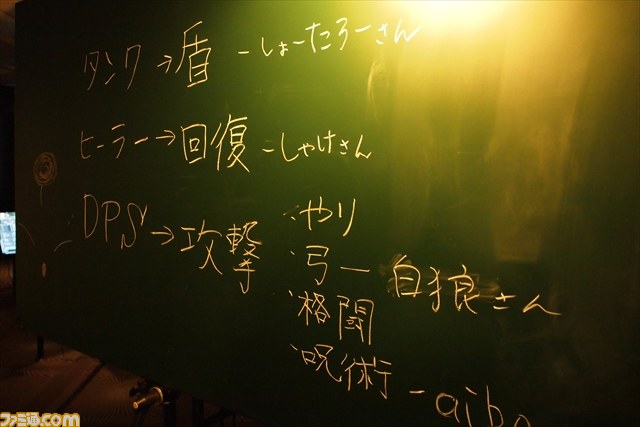 タンク→盾ーしょーたろーさん
ヒーラー→回復ーしゃけさん
DPS→攻撃
・やり
・弓ー白狼さん
・格闘
・呪術ーaibo
ファミ通.com